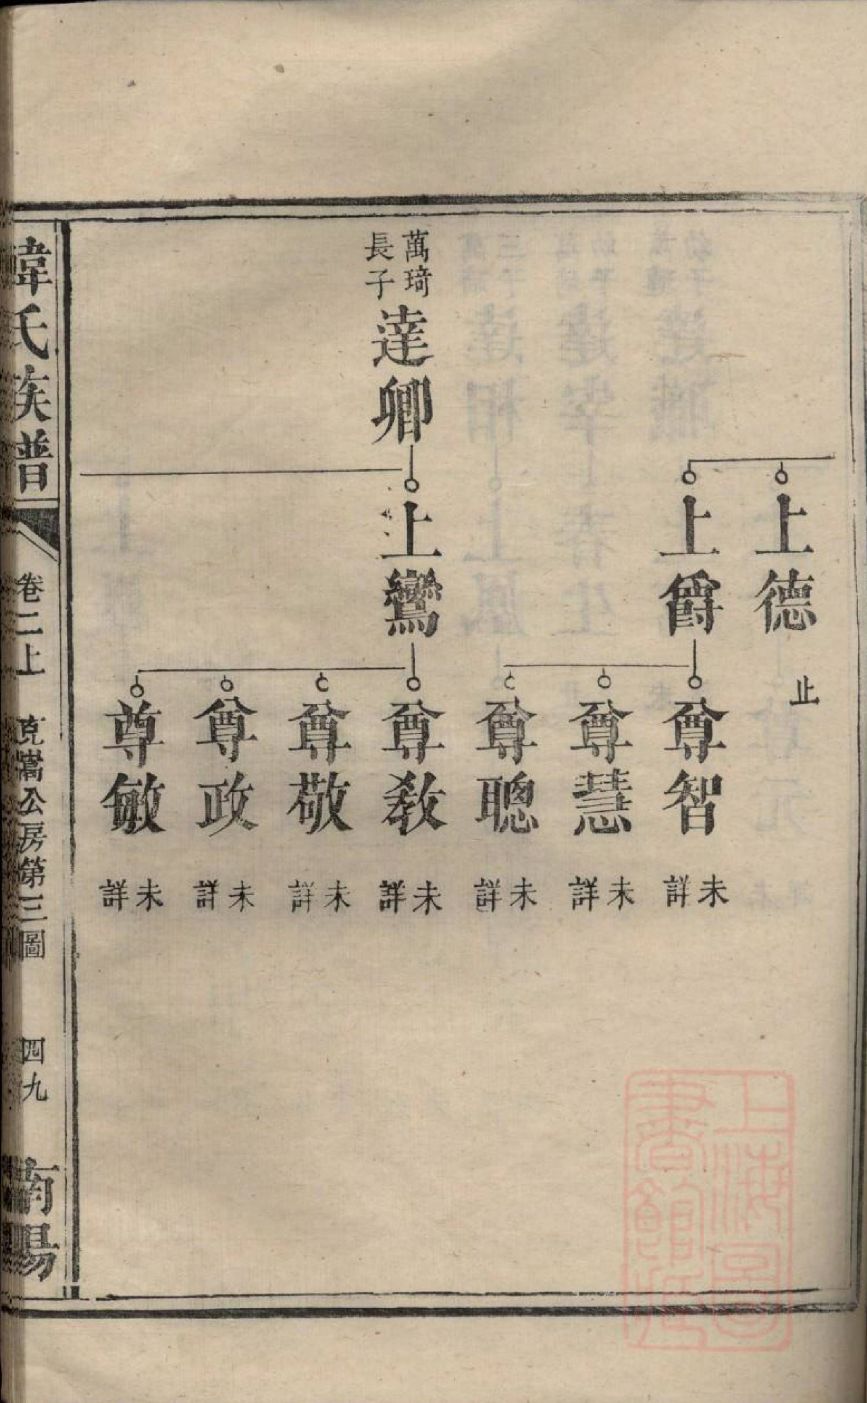 上德
止
上爵
尊智
未詳
尊慧
未詳
尊聰
未詳
萬琦
長子
達卿
上鸞
尊教
未詳
尊敬
未詳
尊政
未詳
尊敏
未詳
韓氏族譜
卷二上
克嵩公房第三圖
四九
南陽
上海圖
書館藏